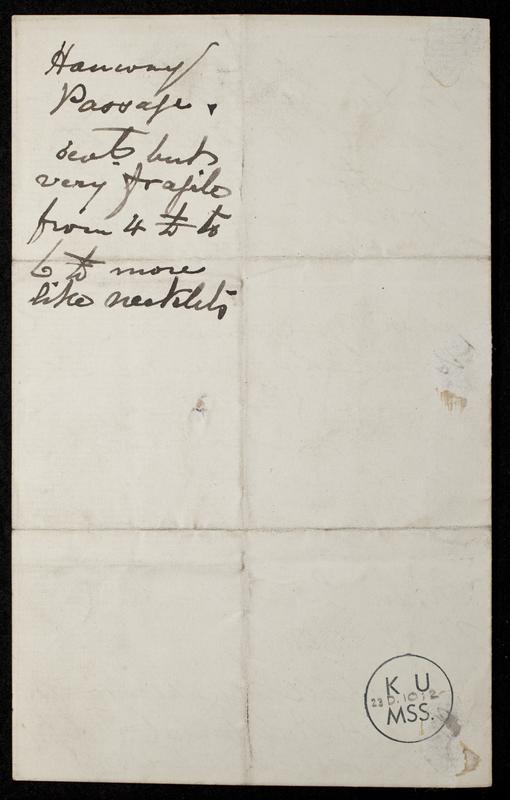 Hanway
Passage.
but
very fragile
from 4 to
6 more
like necklets
K U
23 D. 10
MSS.